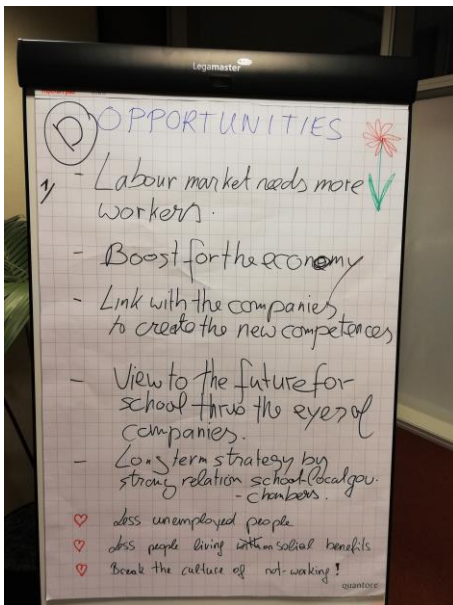 Legamaster
D OPPORTUNITIES
1/ - Labour market needs more
workers.
- Boost for the economy
- Link with the companies
to create the new competences
- View to the future for
school thruo the eyes of
companies.
- Long term strategy by
strong relation school-local gov.
- chambers.
♡ Less unemployed people
♡ Less people living with on solial benefits
♡ Break the culture of not-working!
quantore